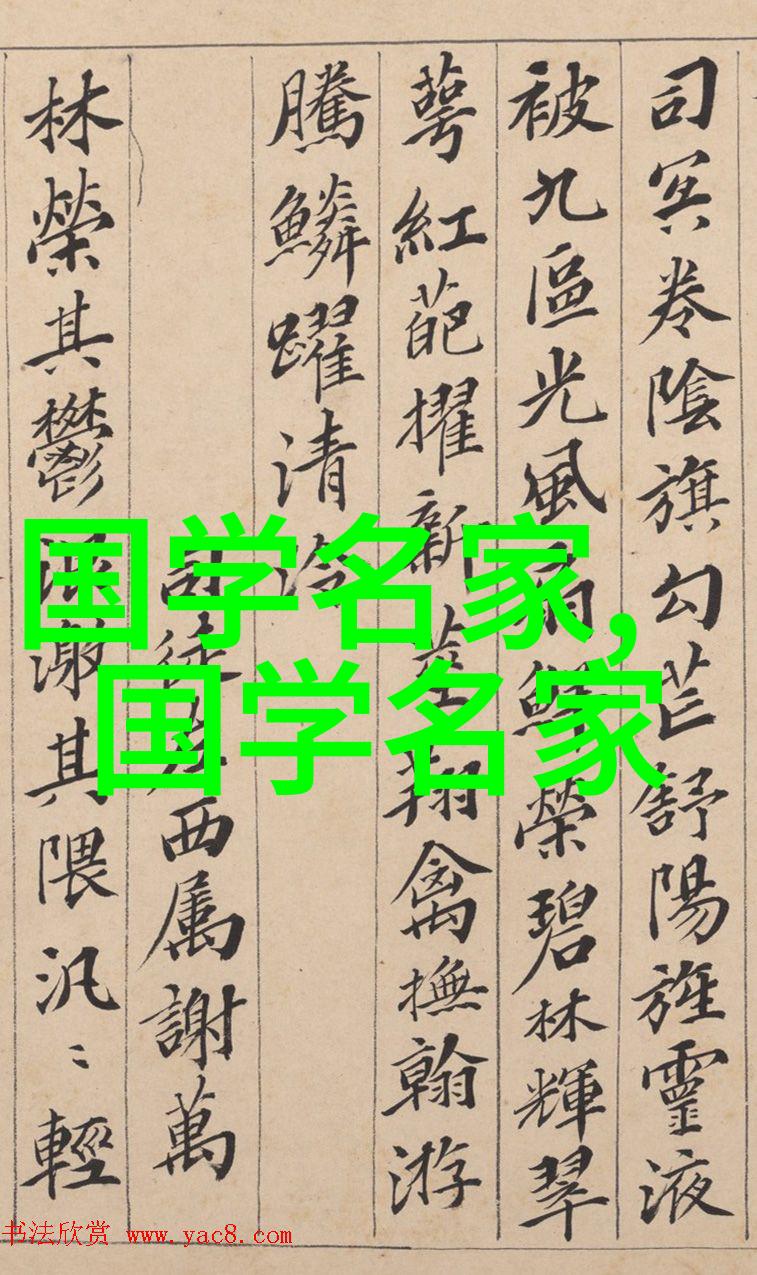 司冥卷陰旗勾芒舒陽旌靈液
被九區光風扇鮮榮碧林輝翠
萼紅葩擢新莖翔禽撫翰游
騰鱗躍清泠
司徒左西属謝萬
林榮其鬱浪激其隈汎〻輕
国学名家,
国学名家
书法欣赏 www.yac8.com